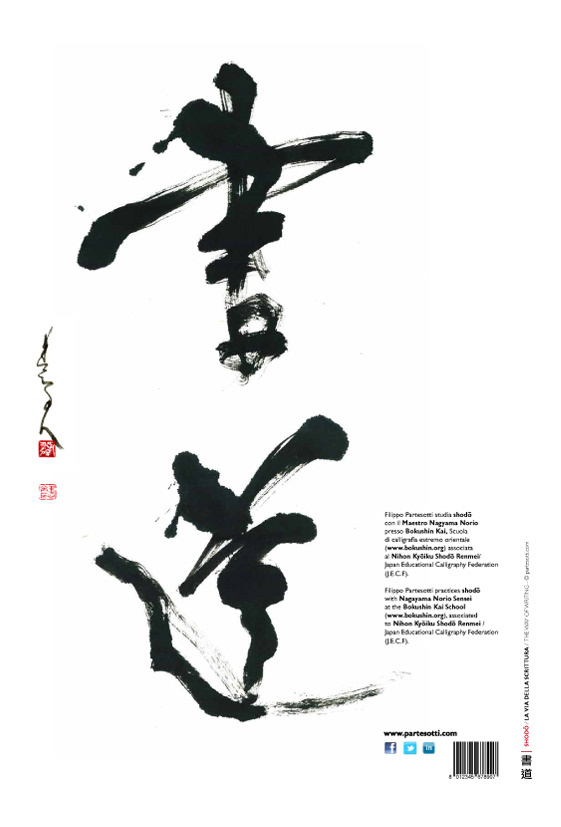 書
道
Filippo Partesotti studia shodō
con il Maestro Nagyama Norio
presso Bokushin Kai, Scuola
di calligrafia estremo orientale
(www.bokushin.org) associata
al Nihon Kyōiku Shodō Renmei/
Japan Educational Calligraphy Federation
(J.E.C.F).
Filippo Partesotti practices shodō
with Nagayama Norio Sensei
at the Bokushin Kai School
(www.bokushin.org), associated
to Nihon Kyōiku Shodō Renmei /
Japan Educational Calligraphy Federation
(J.E.C.F).
www.partesotti.com
8 012345 678907
書道 | SHODŌ / LA VIA DELLA SCRITTURA / THE WAY OF WRITING - © partesotti.com